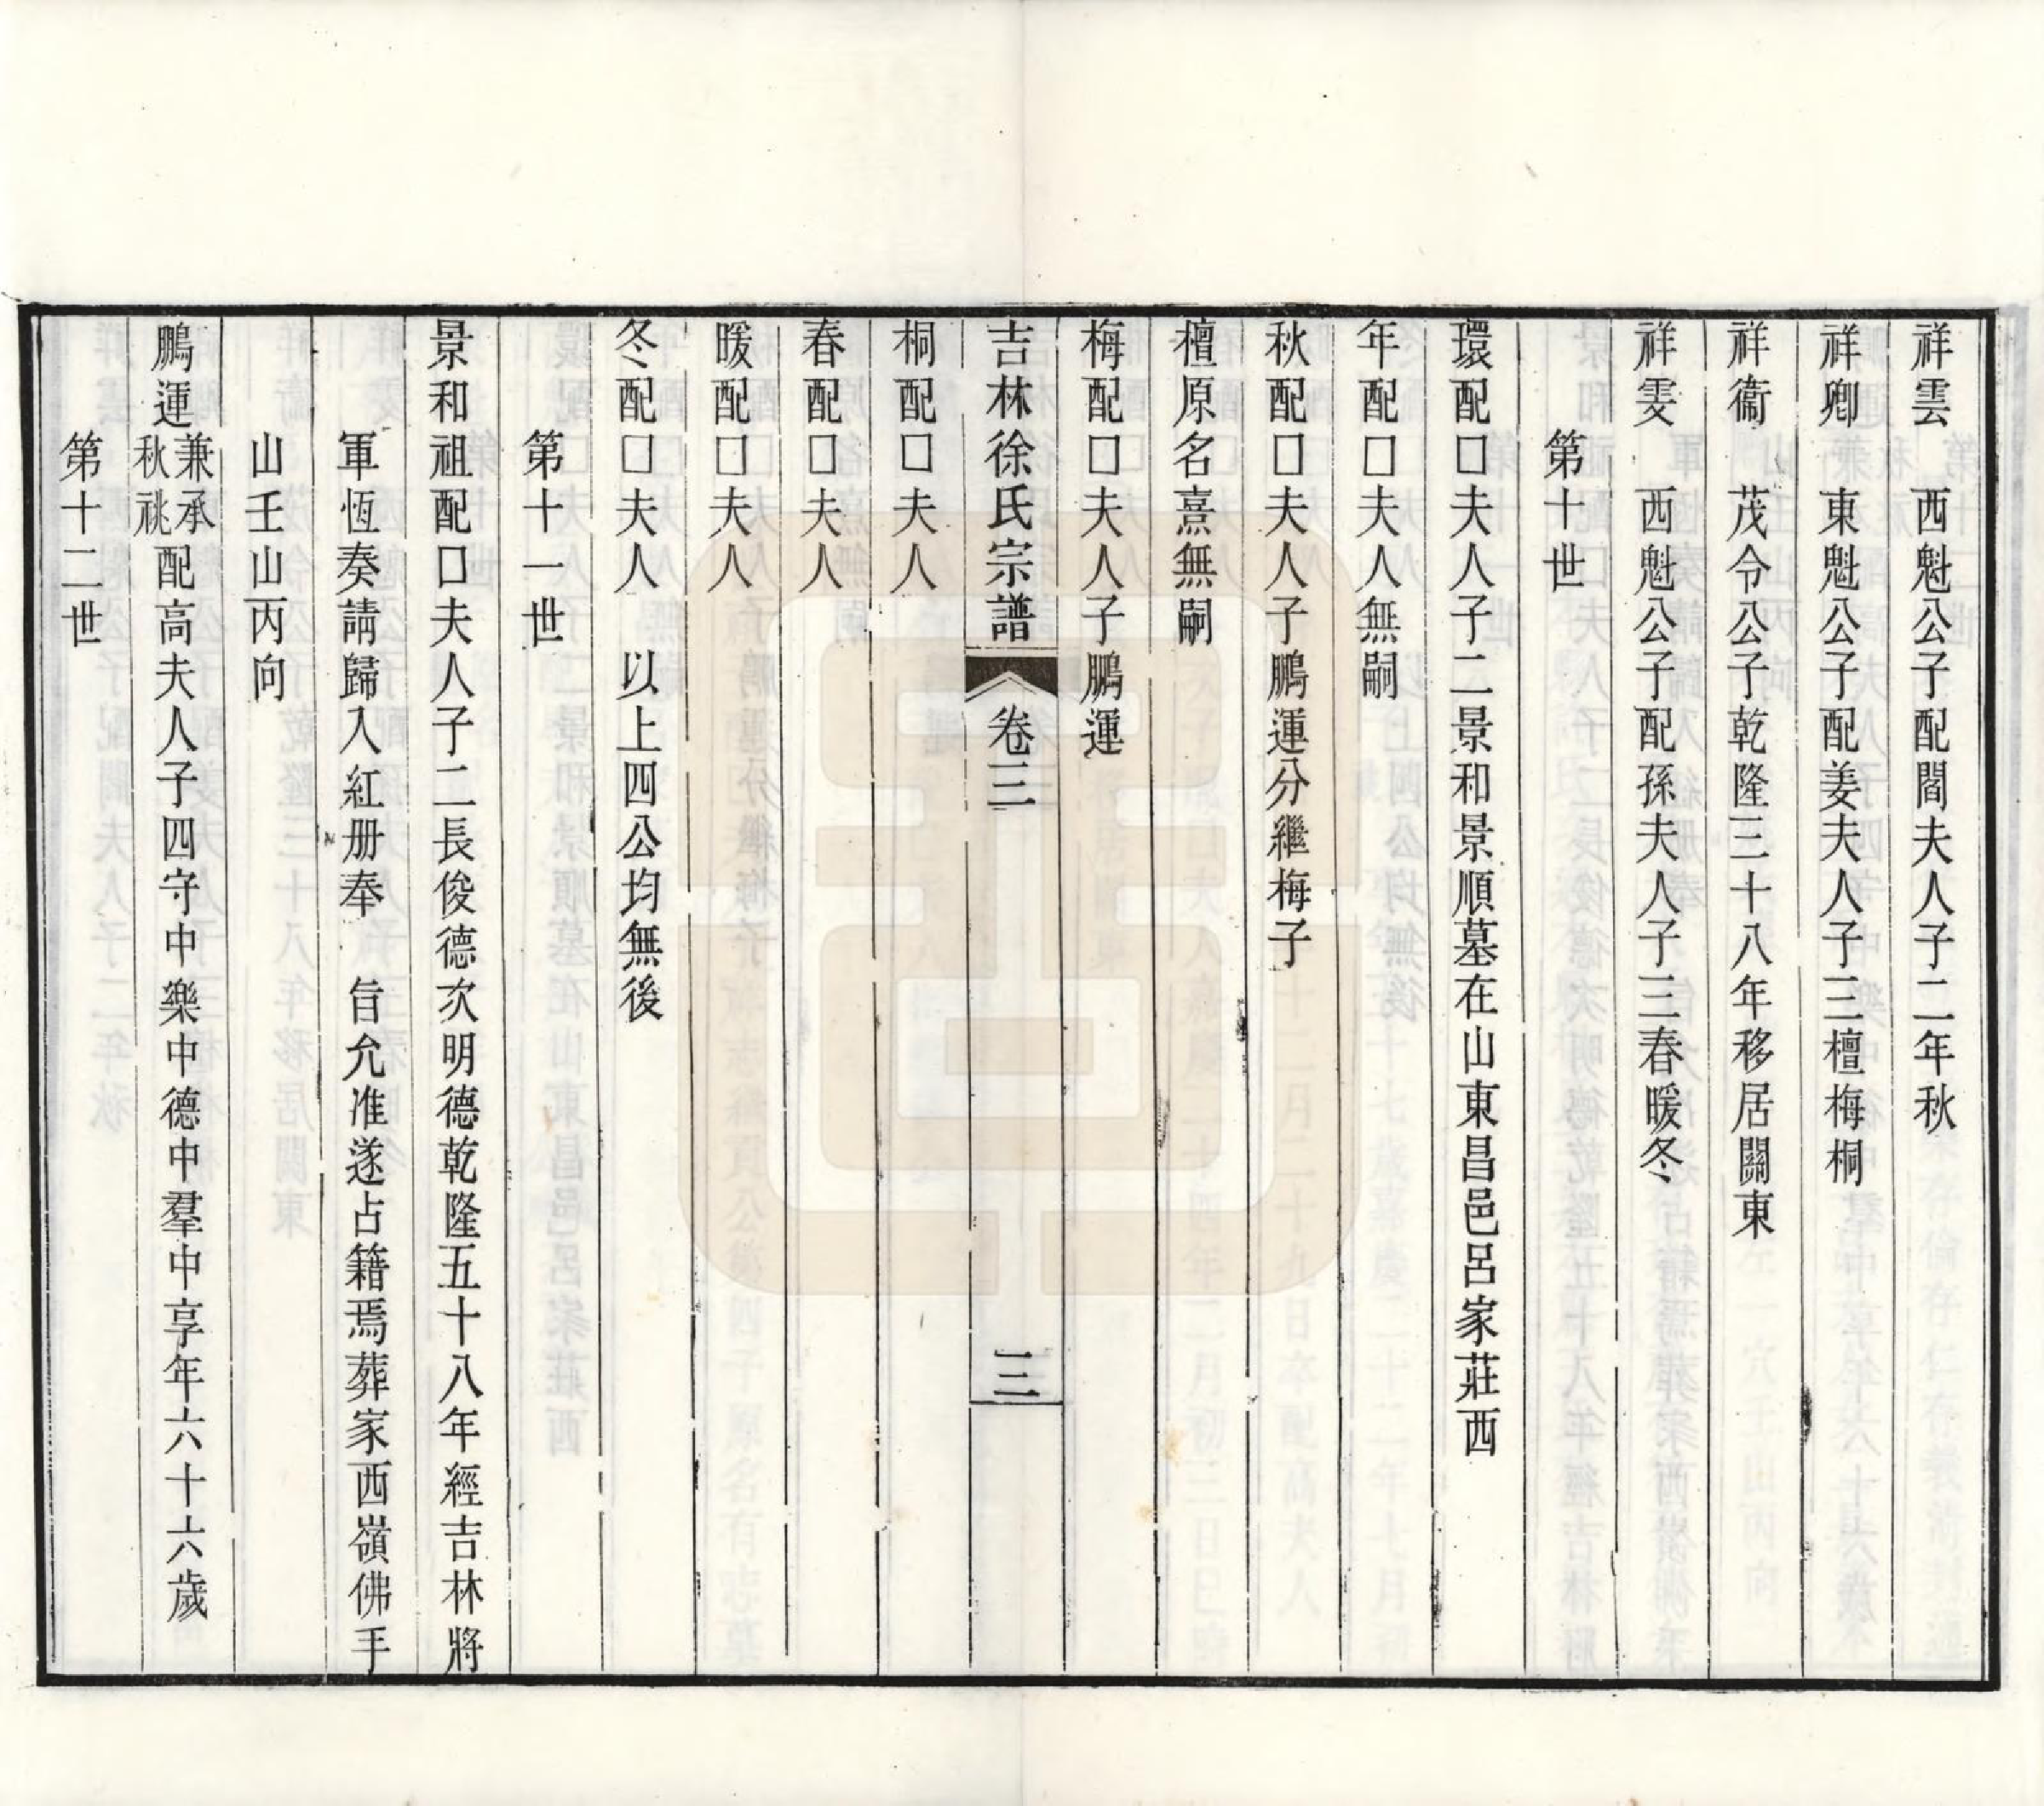 祥雲　西魁公子配閻夫人子二年秋
祥卿　東魁公子配姜夫人子三檀梅桐
祥衞　茂令公子乾隆三十八年移居關東
祥雯　西魁公子配孫夫人子三春暖冬
第十世
環配口夫人子二景和景順墓在山東昌邑呂家莊西
年配口夫人無嗣
秋配口夫人子鵬運分繼梅子
檀原名熹無嗣
梅配口夫人子鵬運
吉林徐氏宗譜　卷三　三
桐配口夫人
春配口夫人
暖配口夫人
冬配口夫人　以上四公均無後
第十一世
景和祖配口夫人子二長俊德次明德乾隆五十八年經吉林將
軍恆奏請歸入紅册奉　旨允准遂占籍焉葬家西嶺佛手
山壬山丙向
鵬運兼承秋祧配高夫人子四守中樂中德中羣中享年六十六歲
第十二世